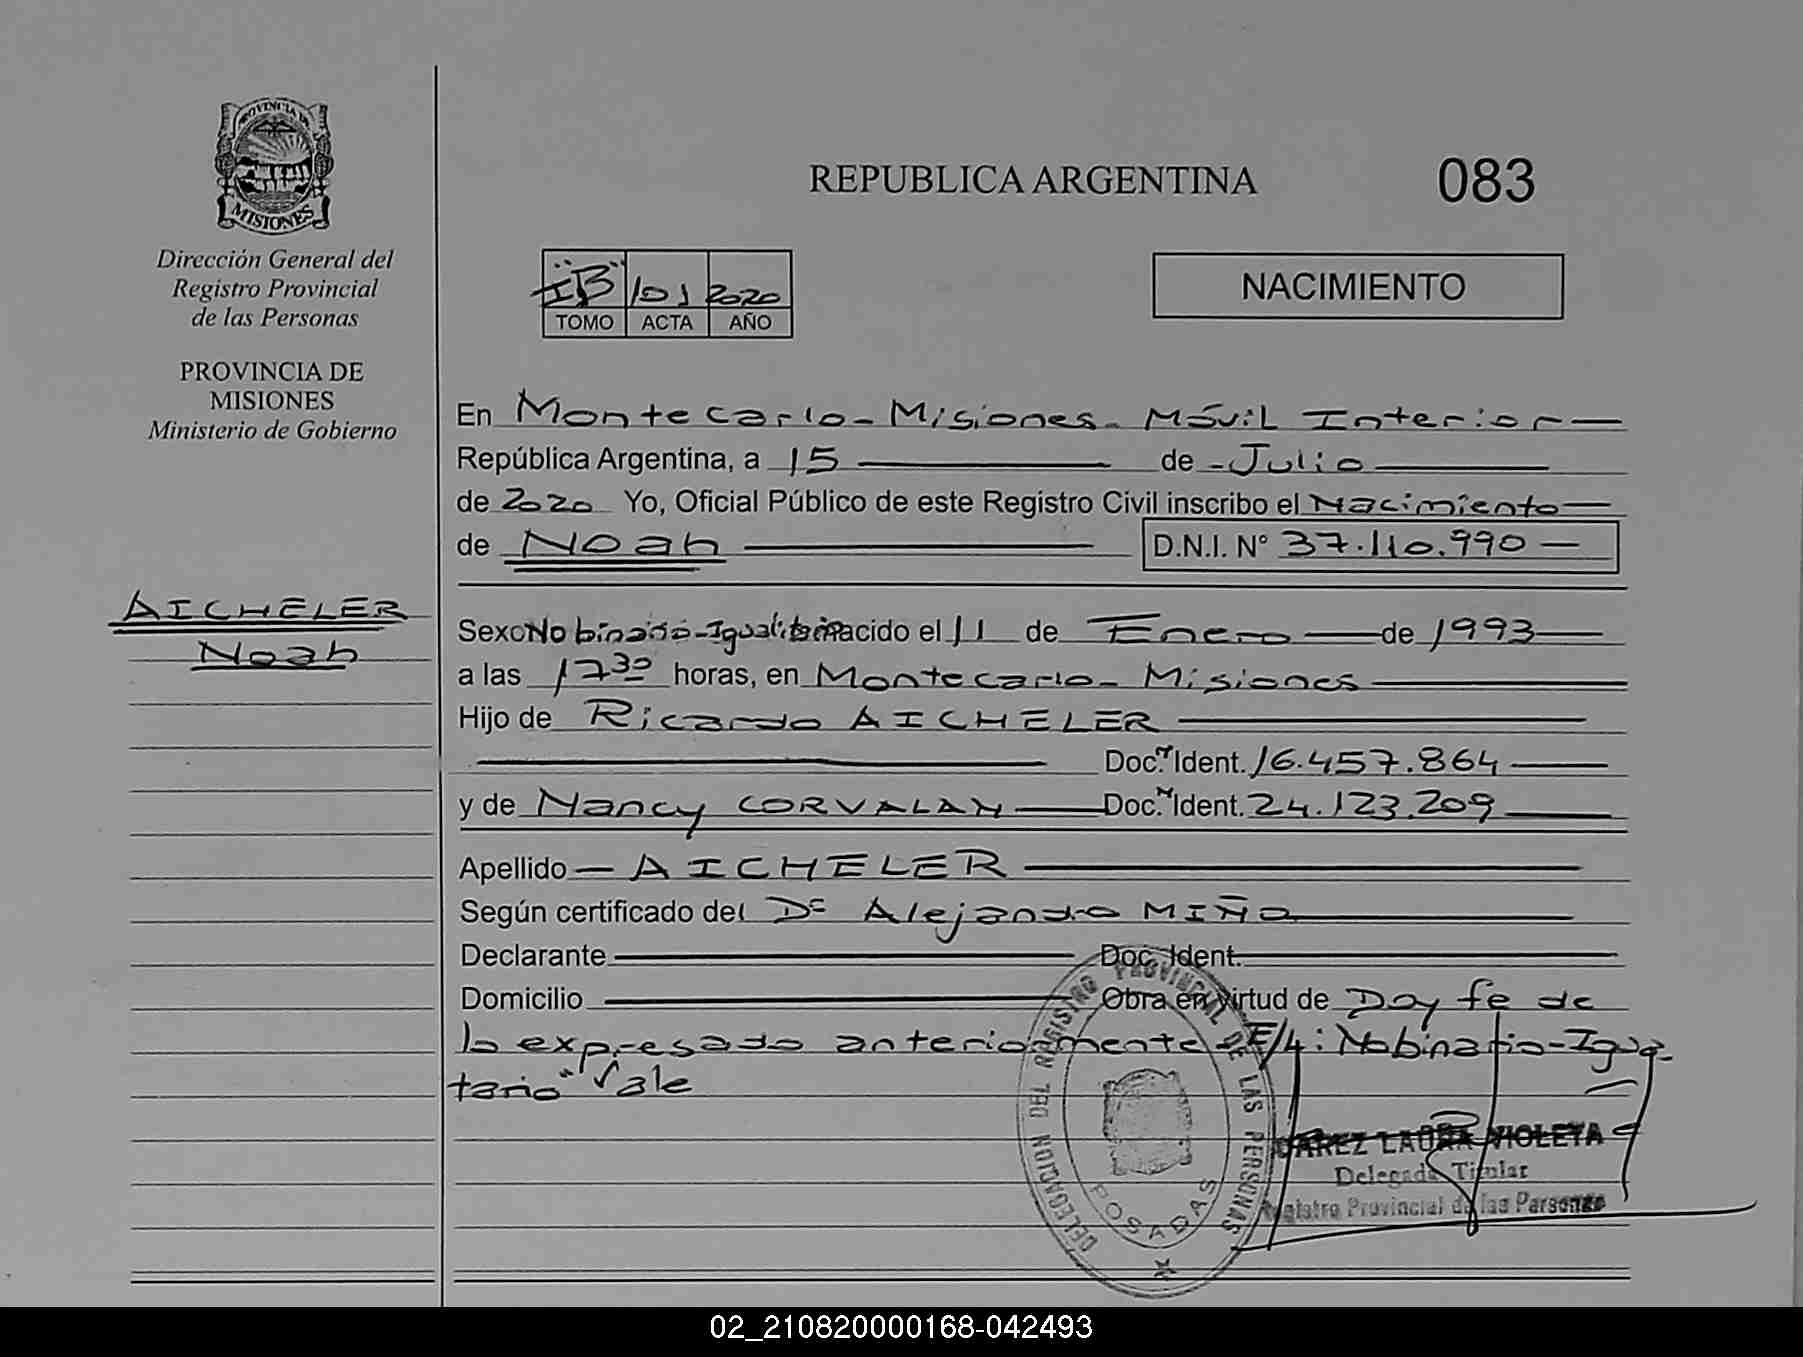 PROVINCIA DE
MISIONES
Dirección General del
Registro Provincial
de las Personas
PROVINCIA DE
MISIONES
Ministerio de Gobierno
AICHELER
Noah
REPUBLICA ARGENTINA
083
"IB" 101 2020
TOMO ACTA AÑO
NACIMIENTO
En Montecarlo - Misiones - Móvil Interior
República Argentina, a 15 de - Julio
de 2020 Yo, Oficial Público de este Registro Civil inscribo el Nacimiento
de Noah D.N.I. N° 37.110.990
Sexo No binario - Igualitario nacido el 11 de Enero de 1993
a las 17 30 horas, en Montecarlo - Misiones
Hijo de Ricardo AICHELER
Doc. Ident. 16.457.864
y de Nancy CORVALAN Doc. Ident. 24.123.209
Apellido AICHELER
Según certificado del Dr Alejandro MIÑO
Declarante Doc. Ident.
Domicilio Obra en virtud de Doy fe de
lo expresado anteriormente E/4: No binario - Igua-
tario" Vale
DELEGACION DEL REGISTRO PROVINCIAL DE LAS PERSONAS
POSADAS
LAURA VIOLETA
Delegada Titular
Registro Provincial de las Personas
02_210820000168-042493